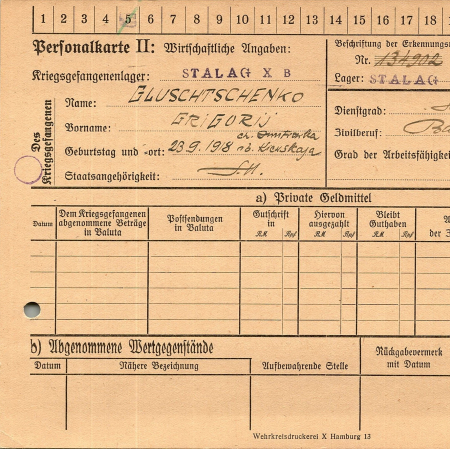 1 2 3 4 5 6 7 8 9 10 11 12 13 14 15 16 17 18
Personalkarte II: Wirtschaftliche Angaben:
Beschriftung der Erkennungsm
Nr. 134902
Kriegsgefangenenlager: STALAG X B
Lager: STALAG
Des Kriegsgefangenen
Name: GLUSCHTSCHENKO
Vorname: GRIGORIJ
Dienstgrad:
Geburtstag und -ort: 23.9.198
Zivilberuf: Ba
Staatsangehörigkeit: S.U.
Grad der Arbeitsfähigkeit
a) Private Geldmittel
Datum
Dem Kriegsgefangenen abgenommene Beträge in Valuta
Postsendungen in Valuta
Gutschrift in
RM Rpf
Hiervon ausgezahlt
RM Rpf
Bleibt Guthaben
RM Rpf
A
der 3
b) Abgenommene Wertgegenstände
Datum
Nähere Bezeichnung
Aufbewahrende Stelle
Rückgabevermerk mit Datum
Wehrkreisdruckerei X Hamburg 13